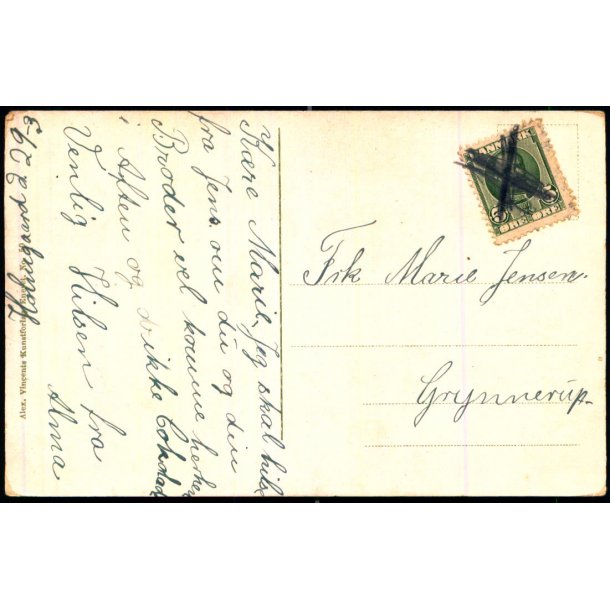 Kære Marie. Jeg skal hilse
fra Jens. om du og din
Broder vel komme herhen
i Aften og drikke Cokolade
Venlig Hilsen fra
Alma
Alex. Vincents Kunstforlag, Eneret. No.
DANMARK
5 5
ØRE ØRE
Frk Marie Jensen.
Grynnerup.